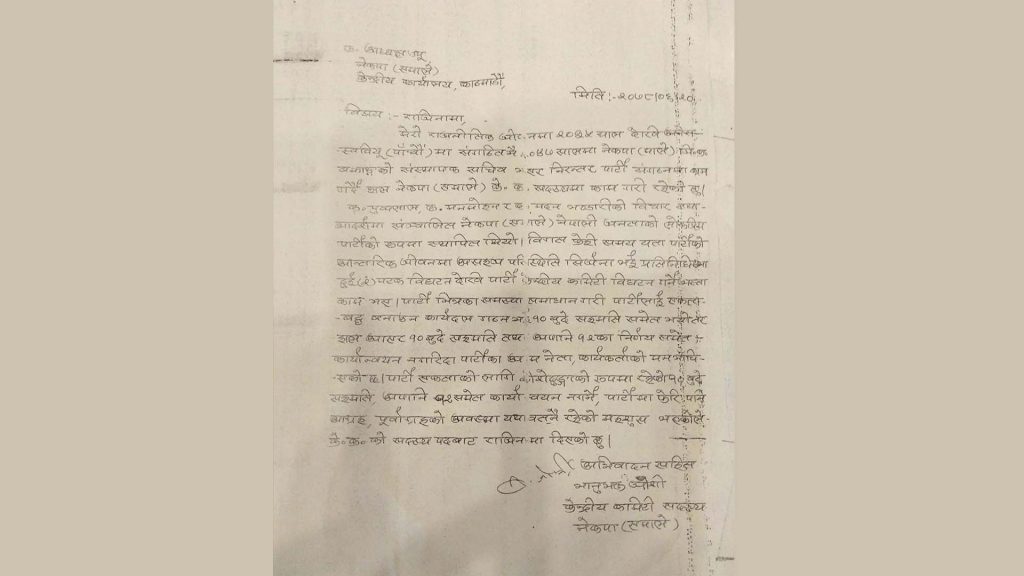 क. अध्यक्ष ज्यू
नेकपा (एमाले)
केन्द्रीय कार्यालय, काठमाडौं,
मिति :- २०७८।०६।२०
विषय :- राजिनामा,
मेरो राजनीतिक जीवनमा २०३४ साल देखि
स्ववियू (पाँचौं) मा संगठित भै, ०४७ सालमा नेकपा (माले)
को संस्थापक सचिव भएर निरन्तर पार्टी संगठनमा काम
गर्दै हाल नेकपा (एमाले) के. क. सदस्यमा काम गरी रहेको छु।
क. पुष्पलाल, क. मनमोहन र क. मदन भण्डारीको विचार
आदर्शमा संञ्चालित नेकपा (एमाले) नेपाली जनताको लोकप्रिय
पार्टीको रुपमा स्थापित थियो। विगत केही समय यता पार्टीको
आन्तरिक जीवनमा असहज्य परिस्थिति सिर्जना भई प्रतिनिधिसभा
दुई(२) पटक विघटन देखि पार्टी केन्द्रीय कमिटी विघटन गर्ने जस्ता
काम भए। पार्टी भित्रका समस्या समाधान गरी पार्टीलाई एकता-
-बद्ध बनाउन कार्यदल गठन भई १० बुदे सहमति समेत भयो तर
हाल आएर १० बुदे सहमति तथा असोज १२ का निर्णय समेत
कार्यान्वयन नगरिदा पार्टीका आम नेता, कार्यकर्ताको मन
छ। पार्टी एकताको लागि रुपमा रहेको १० बुदे
सहमति, असोज १२ समेत कार्यान्वयन नगर्ने, पार्टीमा फेरि पनि
आग्रह, पूर्वाग्रहको अवस्था यथावतनै रहेको महशुस भएकोले
के. क. को सदस्य पदबाट राजिनामा दिएको छु।
अभिवादन सहित
भानुभक्त जोशी
केन्द्रीय कमिटी सदस्य
नेकपा (एमाले)